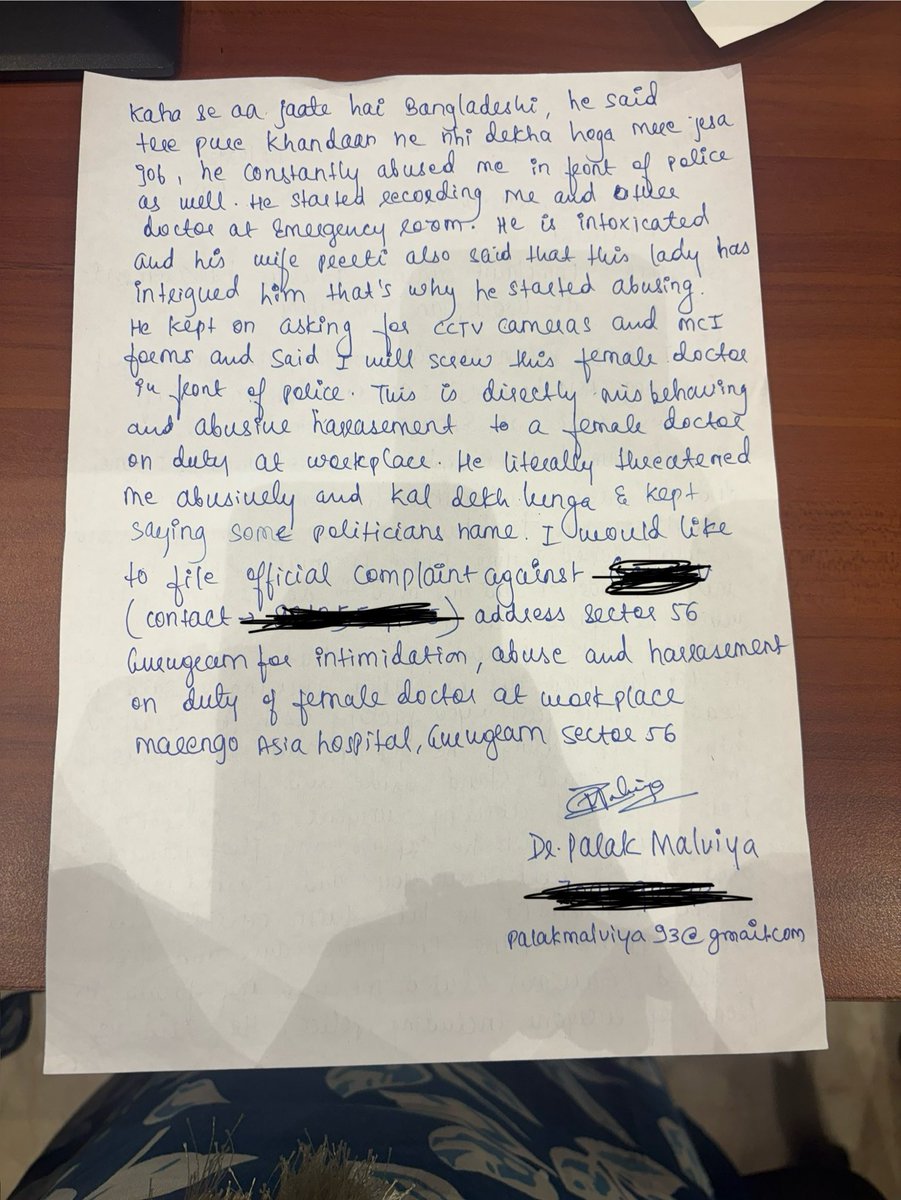 Kaha se aa jaate hai Bangladeshi, he said
tere pure khandaan ne nhi dekha hoga mere jesa
job, he constantly abused me in front of police
as well. He started recording me and other
doctor at Emergency room. He is intoxicated
and his wife preeti also said that this lady has
intrigued him that's why he started abusing.
He kept on asking for CCTV cameras and MCI
forms and said I will screw this female doctor
in front of police. This is directly misbehaving
and abusive harrasement to a female doctor
on duty at workplace. He literally threatened
me abusively and kal dekh lunga & kept
saying some politicians name. I would like
to file official complaint against
(contact - ) address sector 56
Gurugram for intimidation, abuse and harrasement
on duty of female doctor at workplace
marengo Asia hospital, Gurugram sector 56
Dr. Palak Malviya
palakmalviya93@gmail.com